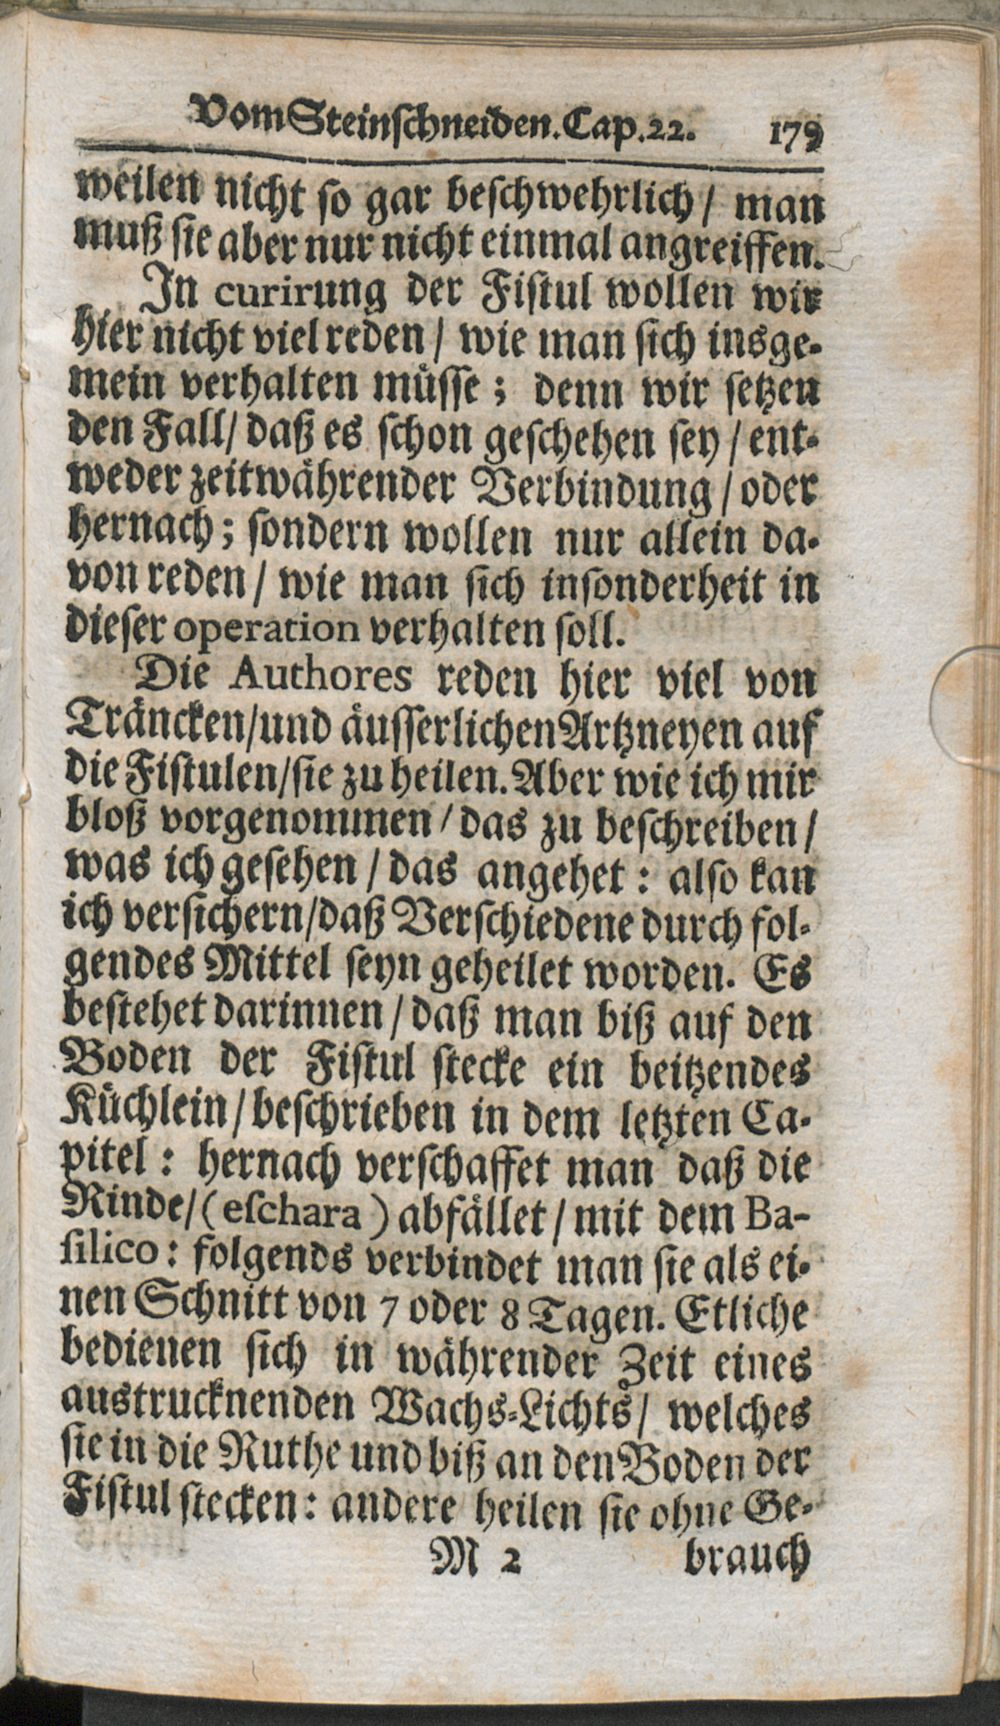 Vom Steinschneiden. Cap. 22. 179
weilen nicht so gar beschwehrlich / man
muß sie aber nur nicht einmal angreiffen.
In curirung der Fistul wollen wir
hier nicht viel reden / wie man sich insge-
mein verhalten müsse; denn wir setzen
den Fall / daß es schon geschehen sey / ent-
weder zeitwährender Verbindung / oder
hernach; sondern wollen nur allein da-
von reden / wie man sich insonderheit in
dieser operation verhalten soll.
Die Authores reden hier viel von
Träncken / und äusserlichen Artzneyen auf
die Fistulen / sie zu heilen. Aber wie ich mir
bloß vorgenommen / das zu beschreiben /
was ich gesehen / das angehet: also kan
ich versichern / daß Verschiedene durch fol-
gendes Mittel seyn geheilet worden. Es
bestehet darinnen / daß man biß auf den
Boden der Fistul stecke ein beitzendes
Küchlein / beschrieben in dem letzten Ca-
pitel: hernach verschaffet man daß die
Rinde / (eschara) abfället / mit dem Ba-
silico: folgends verbindet man sie als ei-
nen Schnitt von 7 oder 8 Tagen. Etliche
bedienen sich in währender Zeit eines
austrucknenden Wachs-Lichts / welches
sie in die Ruthe und biß an den Boden der
Fistul stecken: andere heilen sie ohne Ge-
M 2 brauch